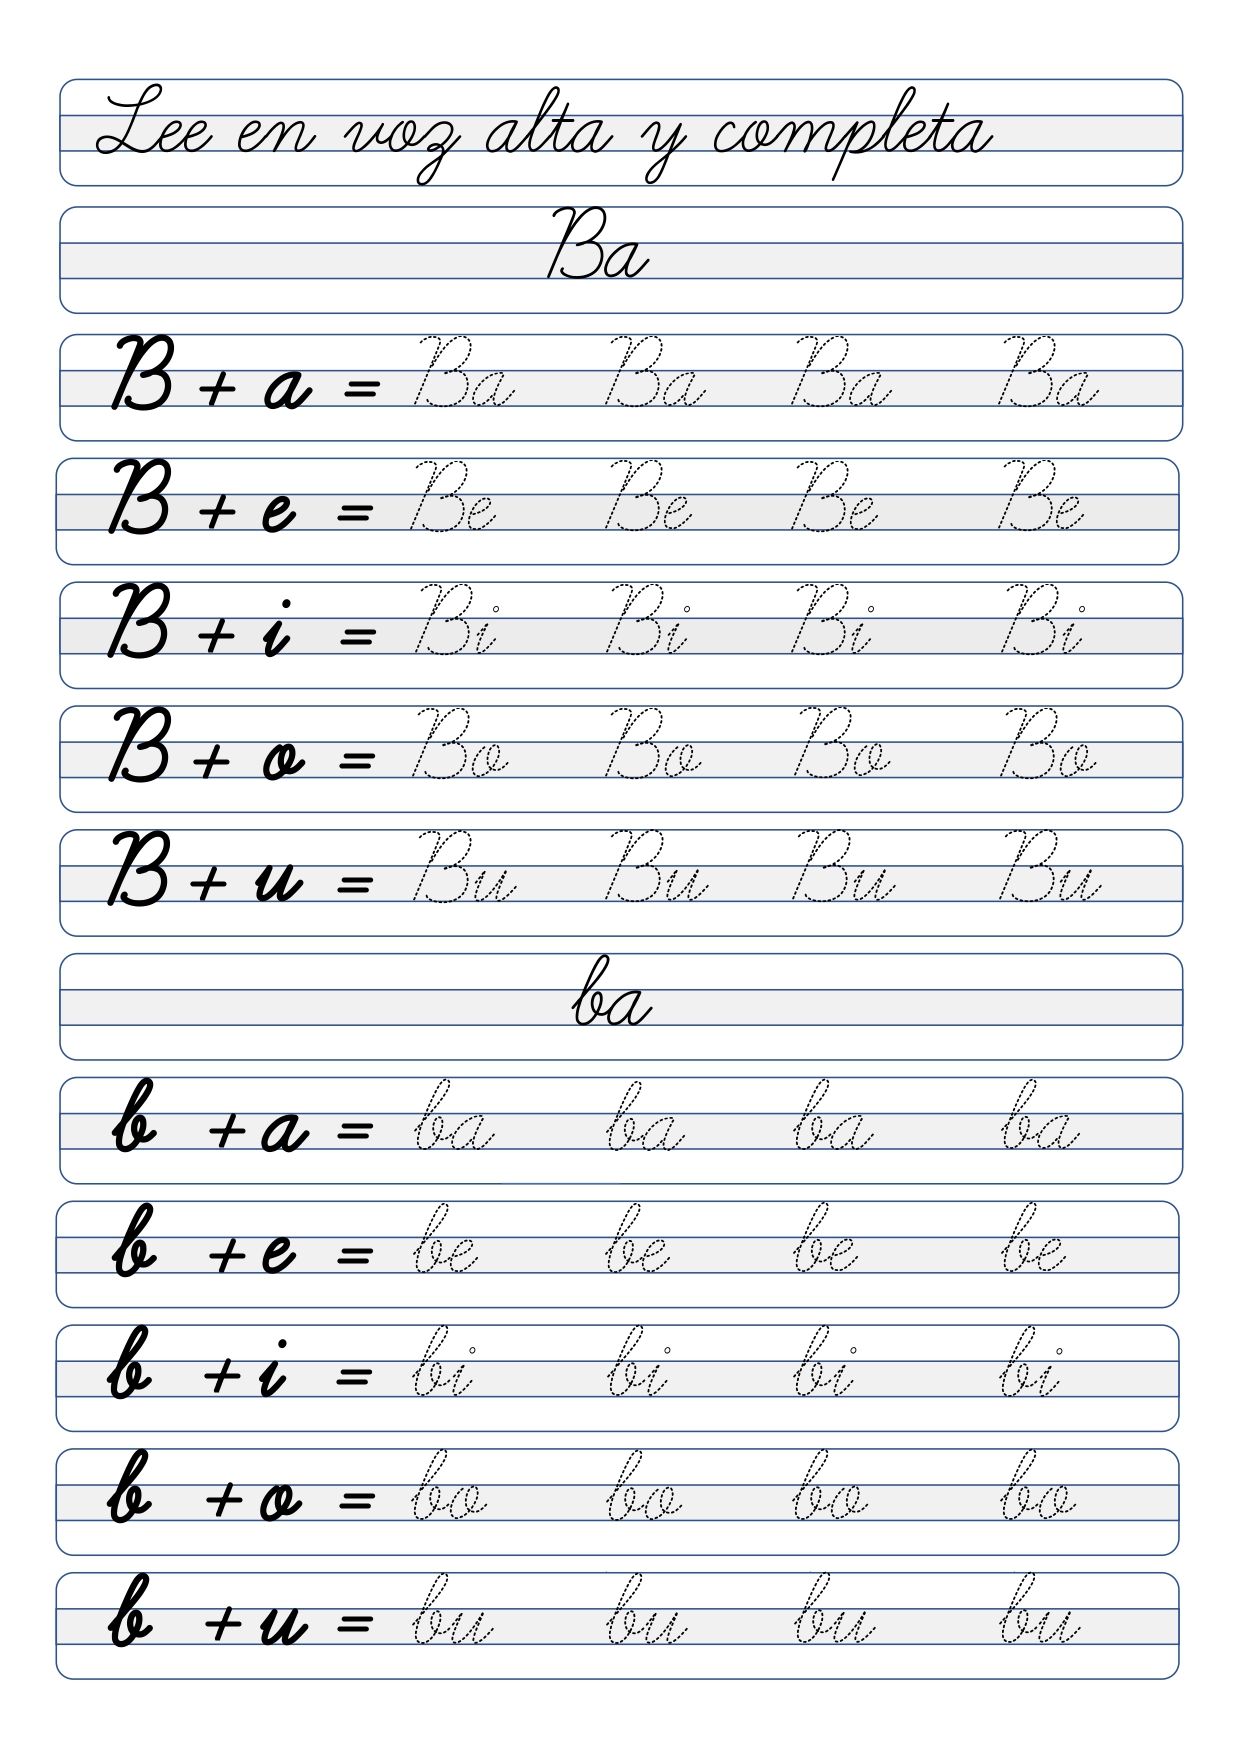 Lee en voz alta y completa
Ba
B + a = Ba Ba Ba Ba
B + e = Be Be Be Be
B + i = Bi Bi Bi Bi
B + o = Bo Bo Bo Bo
B + u = Bu Bu Bu Bu
ba
b + a = ba ba ba ba
b + e = be be be be
b + i = bi bi bi bi
b + o = bo bo bo bo
b + u = bu bu bu bu